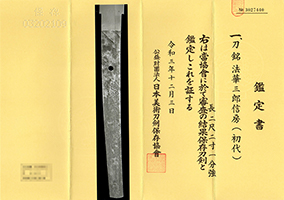 鑑定書
一、刀 銘 法華三郎信房(初代)
長二尺二寸一分強
右は當協會に於て審査の結果保存刀剣と
鑑定しこれを証する
令和三年十二月三日
公益財団法人日本美術刀剣保存協會